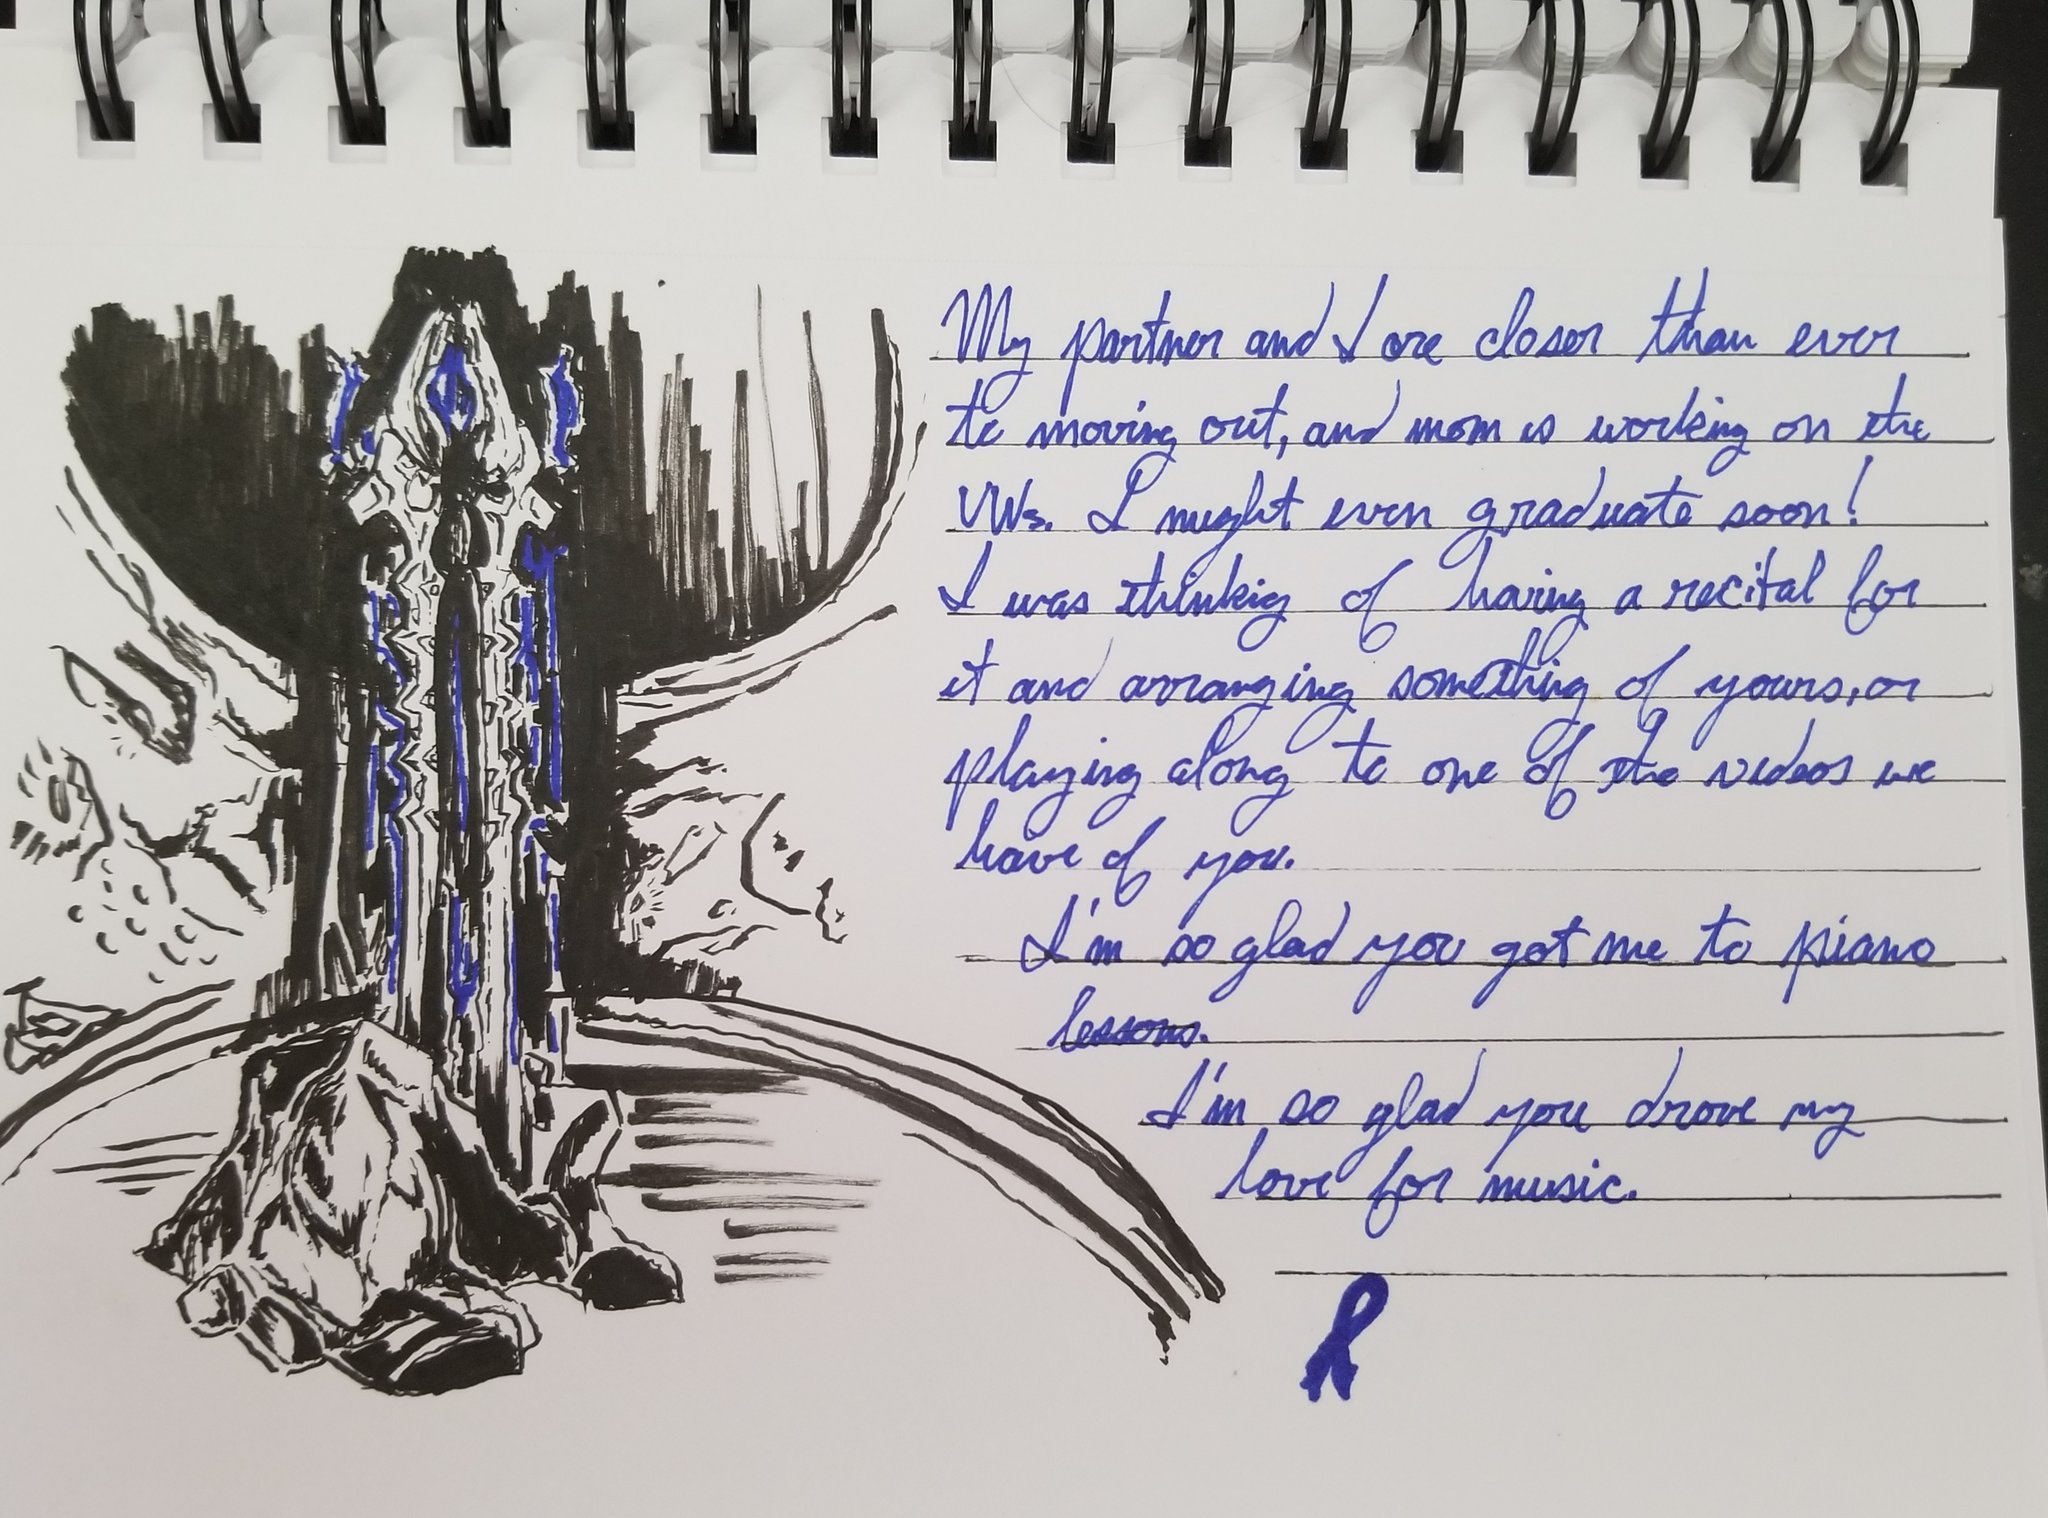 My partner and I are closer than ever
to moving out, and mom is working on the
VWs. I might even graduate soon!
I was thinking of having a recital for
it and arranging something of yours, or
playing along to one of the videos we
have of you.
I'm so glad you got me to piano
lessons.
I'm so glad you drove my
love for music.